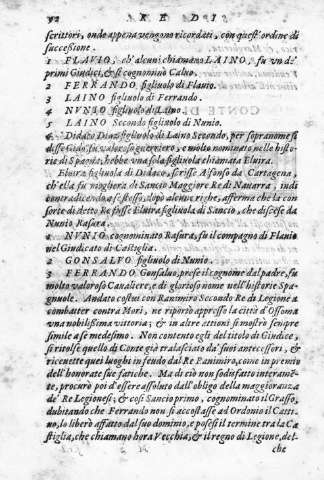 92 RE DI
scrittori, onde appena vengono ricordati, con quest'ordine di
successione.
1 FLAVIO, ch'alcuni chiamano LAINO, fu vn de'
primi Giudici, & si cognominò Caluo.
2 FERRANDO figliuolo di Flauio.
3 LAINO figliuolo di Ferrando.
4 NVNIO figliuolo di Laino.
5 LAINO Secondo figliuolo di Nunio.
6 Didaco Diaz figliuolo di Laino Secondo, per sopranome si
disse Gido, fu valoroso guerriero, e molto nominato nelle histo
rie di Spagna, hebbe vna sola figliuola chiamata Eluira.
Eluira figliuola di Didaco, scrisse Alfonso da Cartagena,
ch'ella fu mogliera di Sancio Maggiore Re di Nauarra, indi
contradicendo a se stesso, dopo alcune righe, afferma che la con
sorte di detto Re fusse Eluira figliuola di Sancio, che discese da
Nunio Rasura.
1 NVNIO cognominato Rasura, fu il compagno di Flauio
nel Giudicato di Castiglia.
2 GONSALVO figliuolo di Nunio.
3 FERRANDO Gonsaluo, prese il cognome dal padre, fu
molto valoroso Caualiere, e di glorioso nome nell'historie Spa-
gnuole. Andato costui con Ranimiro Secondo Re di Legione a
combatter contra Mori, ne riportò appresso la città d'Ossoma
vna nobilissima vittoria; & in altre attioni si mostrò sempre
simile a se medesimo. Non contento egli del titolo di Giudice,
si ritolse quello di Conte già tralasciato da' suoi antecessori, &
riceuette quei luoghi in feudo dal Re Ranimiro, come in premio
dell'honorate sue fatiche. Ma di ciò non sodisfatto interamē-
te, procurò poi d'essere assoluto dall'obligo della maggioranza
de' Re Legionesi; & così Sancio primo, cognominato il Grasso,
dubitando che Ferrando non si accostasse ad Ordonio il Catti-
uo, lo liberò affatto dal suo dominio, e posesi il termine tra la Ca
stiglia, che chiamano hora Vecchia; & il regno di Legione, del-
che